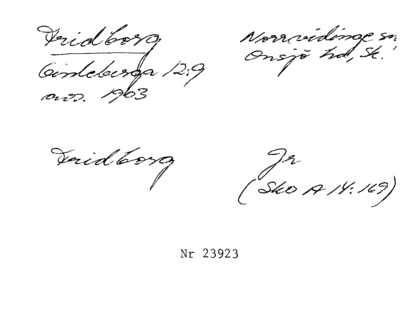 Fridborg
Norrvidinge sn
Ginleberga 12:9
Onsjö hd, Sk.
avs. 1963
Fridborg
Jr
(Sko A 14:169)
Nr 23923